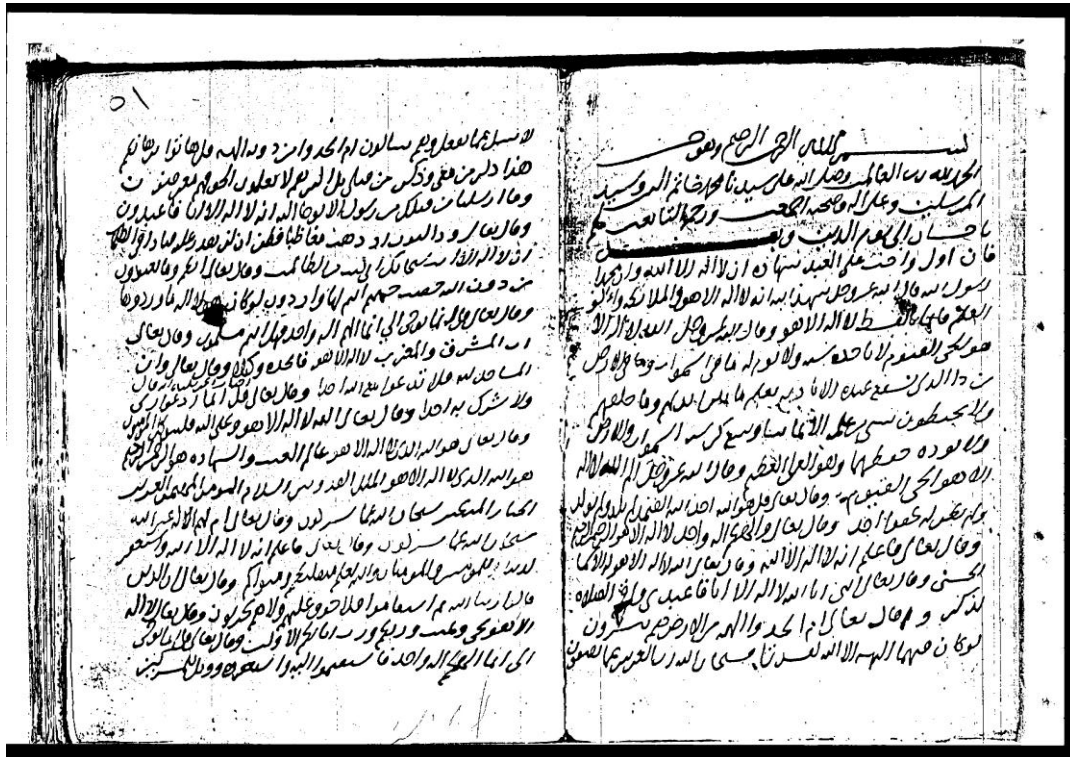 بسم الله الرحمن الرحيم وهو حسبي
الحمد لله رب العالمين وصلى الله على سيدنا محمد خاتم النبيين وسيد
المرسلين وعلى اله وصحبه اجمعين والتابعين لهم
باحسان الى يوم الدين وبعد
فان اول واجب على العبد شهادة ان لا اله الا الله وان محمدا
رسول الله قال الله عز وجل شهد الله انه لا اله الا هو والملائكة واولو
العلم قايما بالقسط لا اله الا هو وقال الله عز وجل الله لا اله الا
هو الحي القيوم لا تاخذه سنة ولا نوم له ما في السموات وما في الارض
من ذا الذي يشفع عنده الا باذنه يعلم ما بين ايديهم وما خلفهم
ولا يحيطون بشيء من علمه الا بما شا وسع كرسيه السموات والارض
ولا يوده حفظهما وهو العلي العظيم وقال الله عز وجل الم الله لا اله
الا هو الحي القيوم وقال تعالى قل هو الله احد الله الصمد لم يلد ولم يولد
ولم يكن له كفوا احد وقال تعالى والهكم اله واحد لا اله الا هو الرحمن الرحيم
وقال تعالى فاعلم انه لا اله الا الله وقال تعالى الله لا اله الا هو له الاسما
الحسنى وقال تعالى انني انا الله لا اله الا انا فاعبدني واقم الصلاة
لذكري وقال تعالى ام اتخذوا الهة من الارض هم ينشرون
لو كان فيهما الهة الا الله لفسدتا فسبحان الله رب العرش عما يصفون
٥١
لا يسئل عما يفعل وهم يسالون ام اتخذوا من دونه الهة قل هاتوا برهانكم
هذا ذكر من معي وذكر من قبلي بل اكثرهم لا يعلمون الحق فهم معرضون
وما ارسلنا من قبلك من رسول الا نوحي اليه انه لا اله الا انا فاعبدون
وقال تعالى وذا النون اذ ذهب مغاضبا فظن ان لن نقدر عليه فنادى في الظلمات
ان لا اله الا انت سبحانك اني كنت من الظالمين وقال تعالى انكم وما تعبدون
من دون الله حصب جهنم انتم لها واردون لو كان هولاء الهة ما وردوها
وقال تعالى قل انما يوحى الي انما الهكم اله واحد فهل انتم مسلمون وقال تعالى
رب المشرق والمغرب لا اله الا هو فاتخذه وكيلا وقال تعالى وان
المساجد لله فلا تدعوا مع الله احدا وقال تعالى قل انما ادعو ربي
ولا اشرك به احدا وقال تعالى الله لا اله الا هو وعلى الله فليتوكل المومنون
وقال تعالى هو الله الذي لا اله الا هو عالم الغيب والشهادة هو الرحمن الرحيم
هو الله الذي لا اله الا هو الملك القدوس السلام المومن المهيمن العزيز
الجبار المتكبر سبحان الله عما يشركون وقال تعالى ام لهم اله غير الله
سبحان الله عما يشركون وقال تعالى فاعلم انه لا اله الا الله واستغفر
لذنبك وللمومنين والمومنات والله يعلم متقلبكم ومثواكم وقال تعالى ان الذين
قالوا ربنا الله ثم استقاموا فلا خوف عليهم ولا هم يحزنون وقال تعالى لا اله
الا هو يحي ويميت ربكم ورب ابائكم الاولين وقال تعالى قل انما يوحى
الي انما الهكم اله واحد فاستقيموا اليه واستغفروه وويل للمشركين